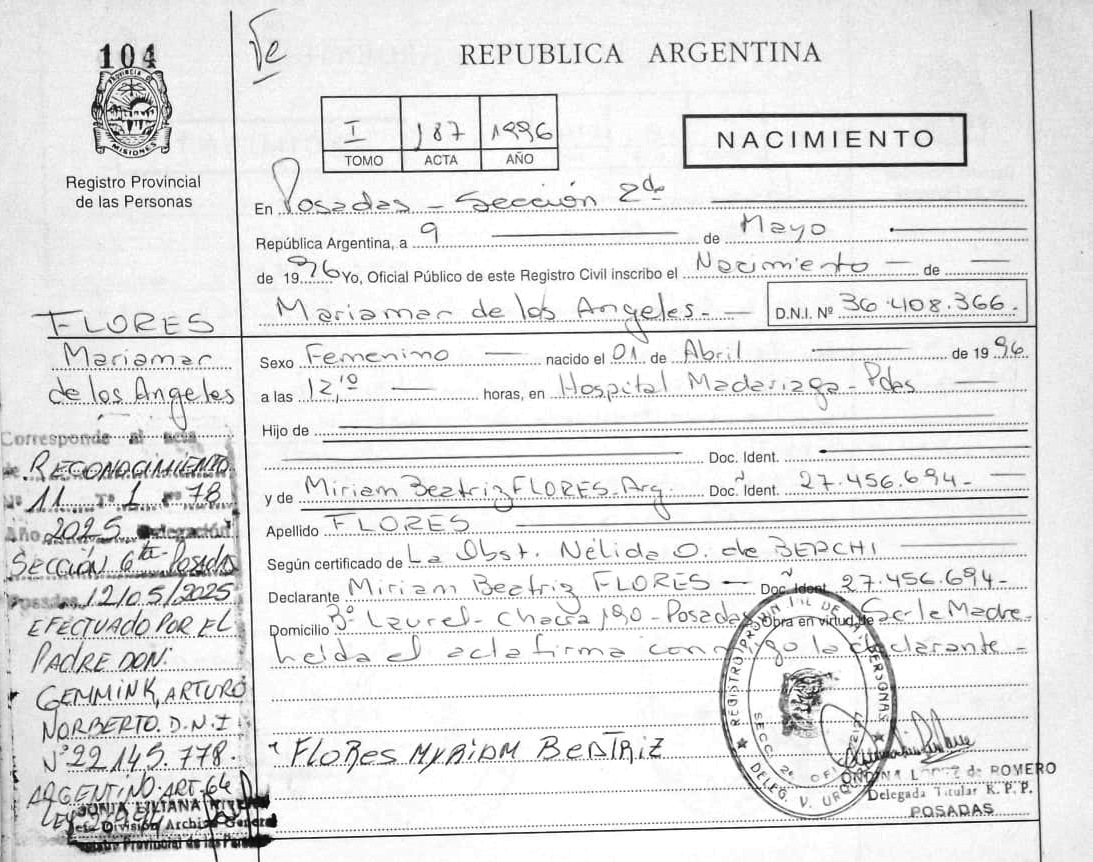 104
PROVINCIA DE
MISIONES
Registro Provincial
de las Personas
REPUBLICA ARGENTINA
I 187 1996
TOMO ACTA AÑO
NACIMIENTO
En Posadas - Sección 2da
República Argentina, a 9 de Mayo
de 1996 Yo, Oficial Público de este Registro Civil inscribo el Nacimiento de
Mariamar de los Angeles.- D.N.I. Nº 36.408.366.
Sexo Femenino nacido el 01 de Abril de 1996
a las 12,10 horas, en Hospital Madariaga - Pdas
Hijo de
Doc. Ident.
y de Miriam Beatriz FLORES - Arg. Doc. Ident. 27.456.694-
Apellido FLORES
Según certificado de La Obst. Nélida O. de BERCHI
Declarante Miriam Beatriz FLORES - Doc. Ident. 27.456.694-
Domicilio Bº Laurel - Chacra 190 - Posadas Obra en virtud de Ser la Madre.
leída el acta firma conmigo la declarante -
FLORES MYRIAM BEATRIZ
REGISTRO PROVINCIAL DE LAS PERSONAS
SECC. 2ª
DELEG. V. URQUIZA
LOPEZ de ROMERO
Delegada Titular R. P. P.
POSADAS
FLORES
Mariamar
de los Angeles
Corresponde al acta
de RECONOCIMIENTO
Nº 11 Tº 1 Fº 78
Año 2025 Delegación
Sección 6ta Posadas
Posadas 12/05/2025
EFECTUADO POR EL
PADRE DON:
GEMMINK, ARTURO
NORBERTO. D.N.I
Nº 22.145.778.
ARGENTINO. ART. 64
SONIA LILIANA
Jefe División Archivo General
Registro Provincial de las Personas